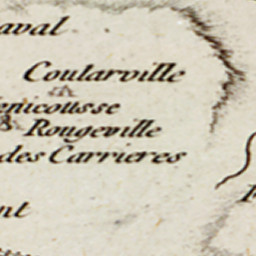 aval
Coularville
enicousse
Rougeville
des Carrieres
nt